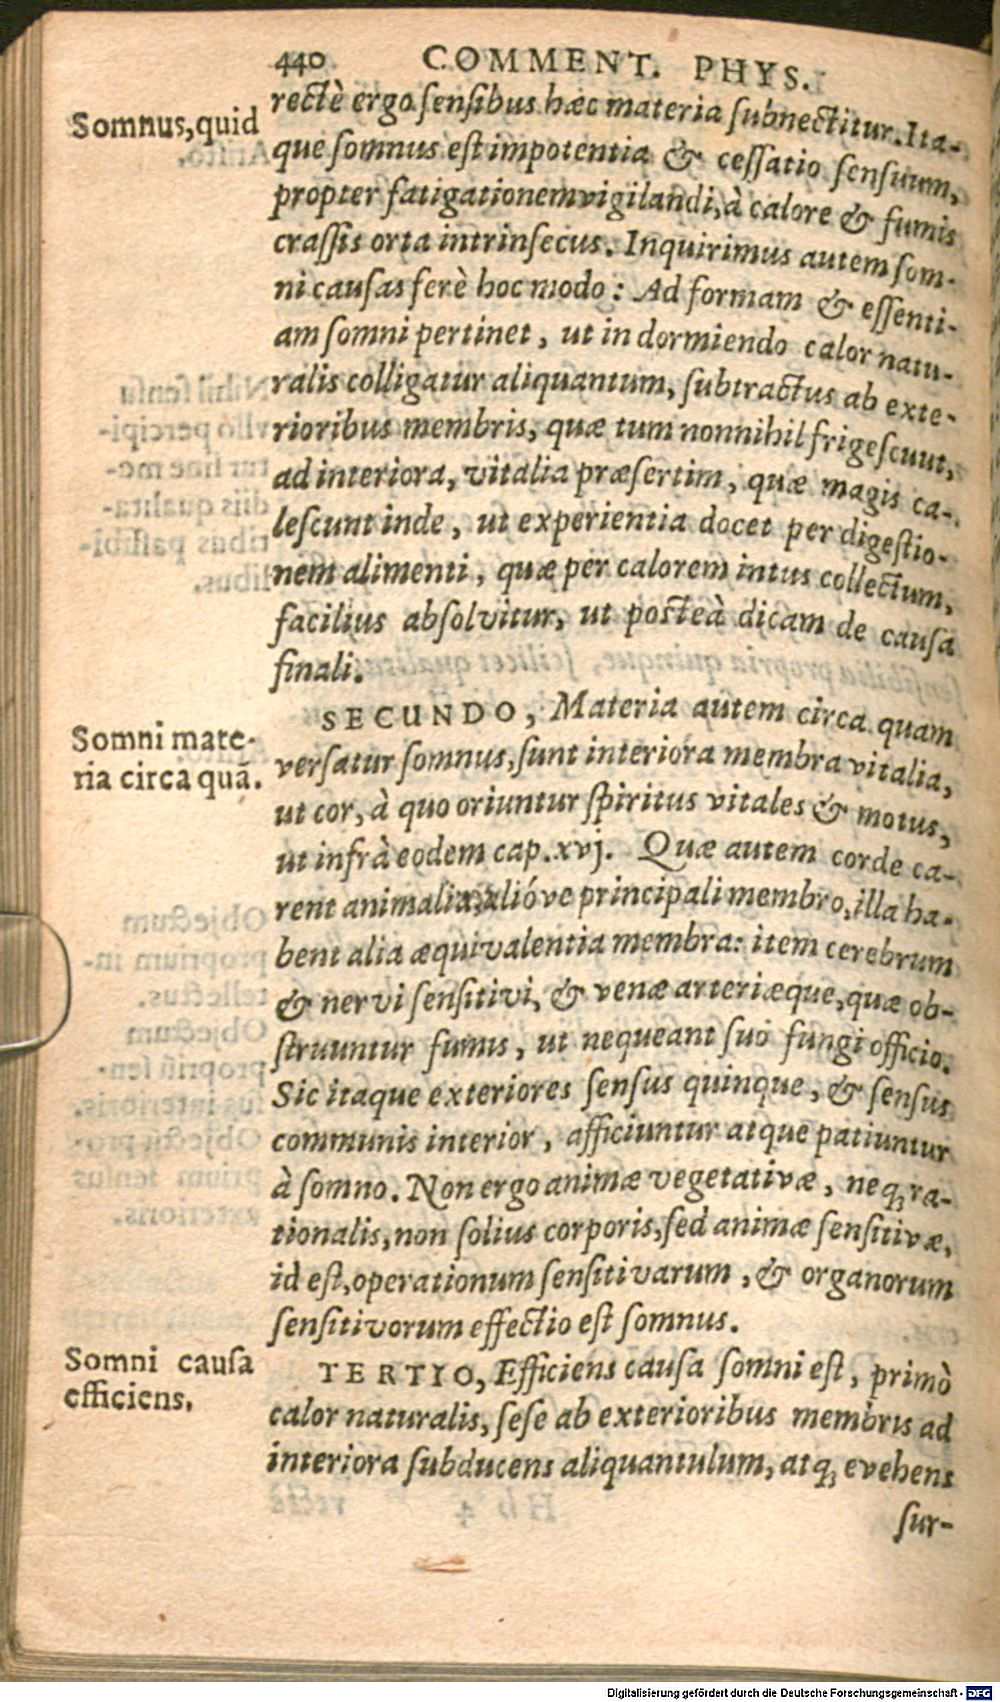 440 COMMENT. PHYS.
Somnus, quid
rectè ergo sensibus hæc materia subnectitur. Ita-
que somnus est impotentia & cessatio sensuum,
propter fatigationem vigilandi, à calore & fumis
crassis orta intrinsecus. Inquirimus autem som-
ni causas ferè hoc modo: Ad formam & essenti-
am somni pertinet, ut in dormiendo calor natu-
ralis colligatur aliquantum, subtractus ab exte-
rioribus membris, quæ tum nonnihil frigescunt,
ad interiora, vitalia præsertim, quæ magis ca-
lescunt inde, ut experientia docet per digestio-
nem alimenti, quæ per calorem intus collectum,
facilius absolvitur, ut posteà dicam de causa
finali.
Somni mate-
ria circa quā.
SECUNDO, Materia autem circa quam
versatur somnus, sunt interiora membra vitalia,
ut cor, à quo oriuntur spiritus vitales & motus,
ut infrà eodem cap. xvj. Quæ autem corde ca-
rent animalia, alióve principali membro, illa ha-
bent alia æquivalentia membra: item cerebrum
& nervi sensitivi, & venæ arteriæque, quæ ob-
struuntur fumis, ut nequeant suo fungi officio.
Sic itaque exteriores sensus quinque, & sensus
communis interior, afficiuntur atque patiuntur
à somno. Non ergo animæ vegetativæ, neq; ra-
tionalis, non solius corporis, sed animæ sensitivæ,
id est, operationum sensitivarum, & organorum
sensitivorum effectio est somnus.
Somni causa
efficiens.
TERTIO, Efficiens causa somni est, primò
calor naturalis, sese ab exterioribus membris ad
interiora subducens aliquantulum, atq; evehens
sur-
Digitalisierung gefördert durch die Deutsche Forschungsgemeinschaft - DFG